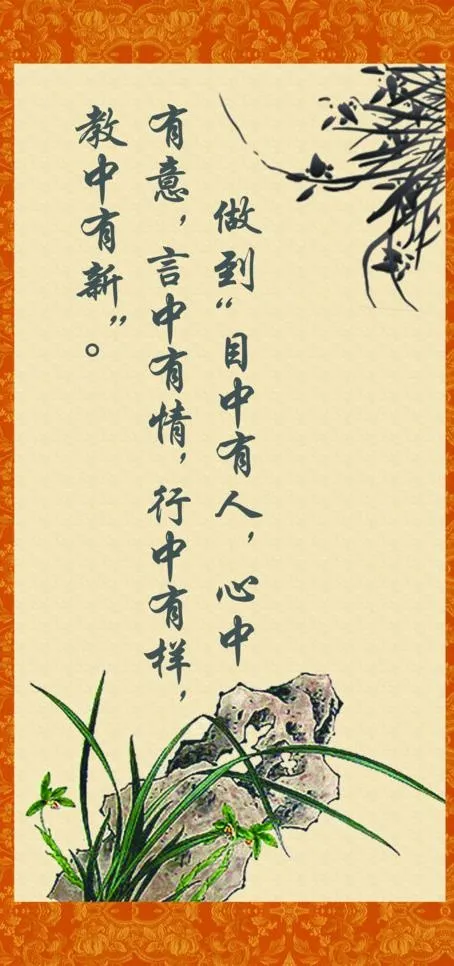 做到“目中有人，心中
有意，言中有情，行中有样，
教中有新”。